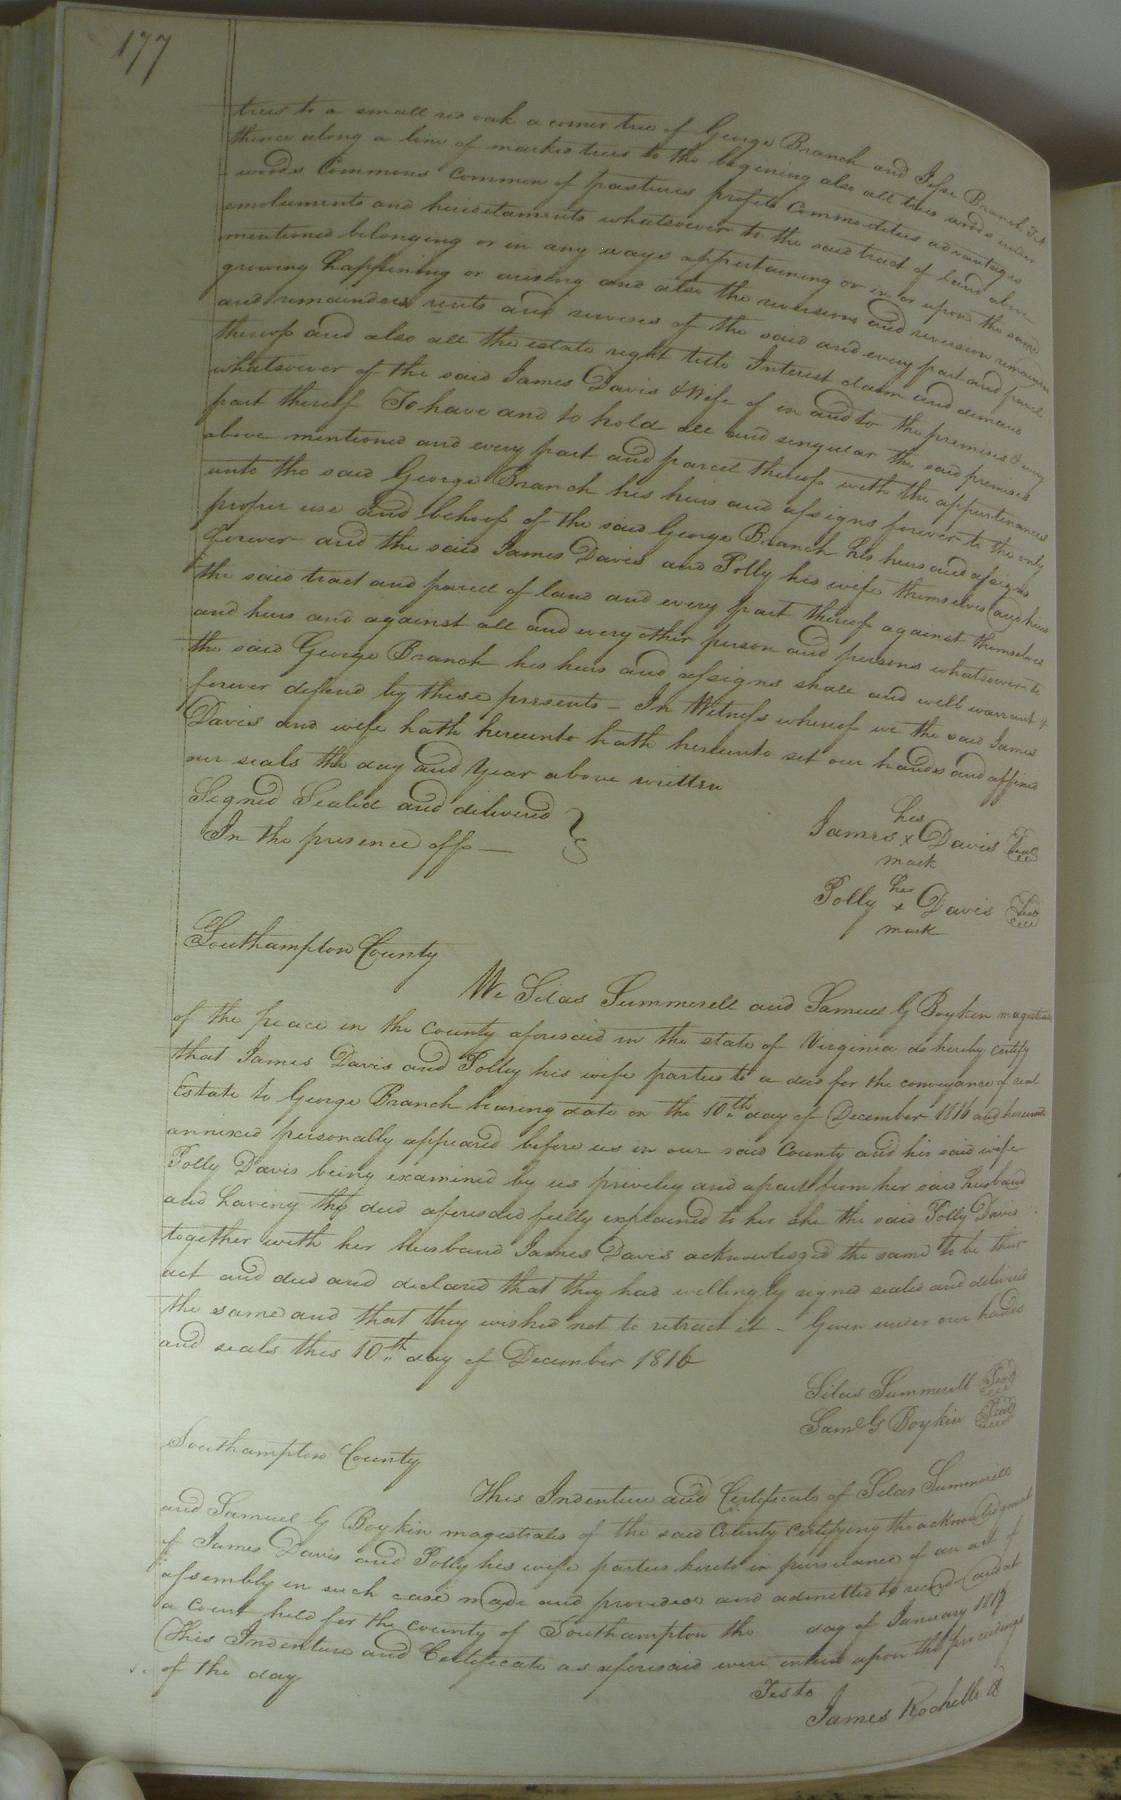 177
trees to a small red oak a corner tree of George Branch and Jesse Branch
thence along a line of marked trees to the begining also all trees woods under
woods Commons Common of pastures profits Commodities advantages
emoluments and heriditaments whatsoever to the said tract of Land above
mentioned belonging or in any ways appertaining or in or upon the same
growing happening or arising and also the reversions and reversion remainder
and remainders rents and services of the said and every part and parcel
thereof and also all the estate right title Interest claim and demand
whatsoever of the said James Davis & Wife of in and to the premises & every
part thereof To have and to hold all and singular the said premises
above mentioned and every part and parcel thereof with the appurtenances
unto the said George Branch his heirs and assigns forever to the only
proper use and behoof of the said George Branch his heirs and assigns
forever and the said James Davis and Polly his wife themselves and heirs
the said tract and parcel of land and every part thereof against themselves
and heirs and against all and every other person and persons whatsoever to
the said George Branch his heirs and assigns shall and will warrant &
forever defend by these presents - In Witness whereof we the said James
Davis and wife hath hereunto hath hereunto set our hands and affixed
our seals the day and Year above written
Signed Sealed and delivered
In the presence off —
his
James x Davis Seal
mark
her
Polly x Davis Seal
mark
Southampton County
We Silas Summerell and Samuel G Boykin magistrates
of the peace in the County aforesaid in the state of Virginia do hereby certify
that James Davis and Polly his wife parties to a deed for the conveyance of real
Estate to George Branch bearing date on the 10th day of December 1816 and hereunto
annexed personally appeared before us in our said County and his said wife
Polly Davis being examined by us priviley and apart from her said husband
and having the deed aforesaid fully explained to her she the said Polly Davis
together with her husband James Davis acknowledged the same to be their
act and deed and declared that they had willingly signed sealed and delivered
the same and that they wished not to retract it - Given under our hands
and seals this 10th day of December 1816
Silas Summerell Seal
Saml G Boykin Seal
Southampton County
This Indenture and Certificate of Silas Summerell
and Samuel G Boykin magestrates of the said County Certifying the acknowledgment
of James Davis and Polly his wife parties hereto in pursuance of an act of
assembly in such case made and provided and admitted to record and at
a Court held for the county of Southampton the day of January 1817
This Indenture and Certificate as aforesaid were entered upon the proceedings
of the day
Teste
James Rochelle